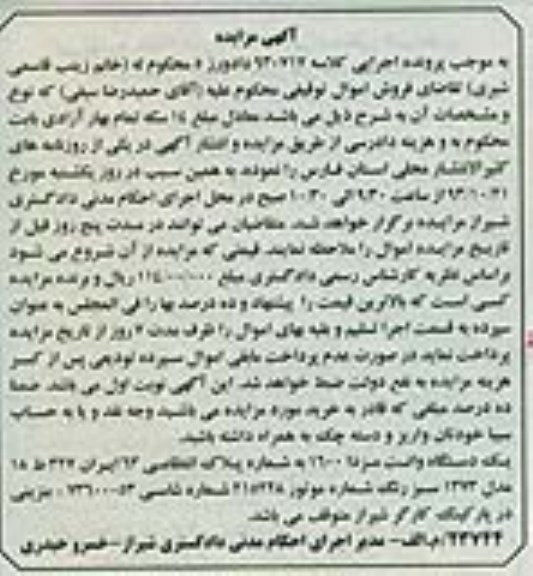 آگهی مزایده
به موجب پرونده اجرایی کلاسه ۹۳۰۷۱۷ دادورز ۵ محکوم له (خانم زینب قاسمی
شیری) تقاضای فروش اموال توقیفی محکوم علیه (آقای حمیدرضا سیفی) که نوع
و مشخصات آن به شرح ذیل می باشد معادل مبلغ ۱۴ سکه تمام بهار آزادی بابت
محکوم به و هزینه دادرسی از طریق مزایده و انتشار آگهی در یکی از روزنامه های
کثیرالانتشار محلی استان فارس را نموده، به همین سبب در روز یکشنبه مورخ
۹۳/۱۰/۲۱ از ساعت ۹:۳۰ الی ۱۰:۳۰ صبح در محل اجرای احکام مدنی دادگستری
شیراز مزایده برگزار خواهد شد. متقاضیان می توانند در مدت پنج روز قبل از
تاریخ مزایده اموال را ملاحظه نمایند. قیمتی که مزایده از آن شروع می شود
براساس نظریه کارشناس رسمی دادگستری مبلغ ریال و برنده مزایده
کسی است که بالاترین قیمت را پیشنهاد و ده درصد بها را فی المجلس به عنوان
سپرده به قسمت اجرا تسلیم و بقیه بهای اموال را ظرف مدت روز از تاریخ مزایده
پرداخت نماید در صورت عدم پرداخت مابقی اموال سپرده تودیعی پس از کسر
هزینه مزایده به نفع دولت ضبط خواهد شد. این آگهی نوبت اول می باشد. ضمنا
ده درصد مبلغی که قادر به خرید مورد مزایده می باشید وجه نقد و یا به حساب
سیبا خودتان واریز و دسته چک به همراه داشته باشید.
یک دستگاه وانت مزدا ۱۶۰۰ به شماره پلاک انتظامی ۶۳ ایران ۳۲۷ ط ۱۸
مدل ۱۳۷۳ سبز رنگ شماره موتور ۲۱۵۲۲۸ شماره شاسی ۷۳۶۱۰۰۵۳ ، بنزینی
در پارکینگ کارگر شیراز متوقف می باشد.
۲۳۷۴۴/م.الف- مدیر اجرای احکام مدنی دادگستری شیراز-خسرو حیدری